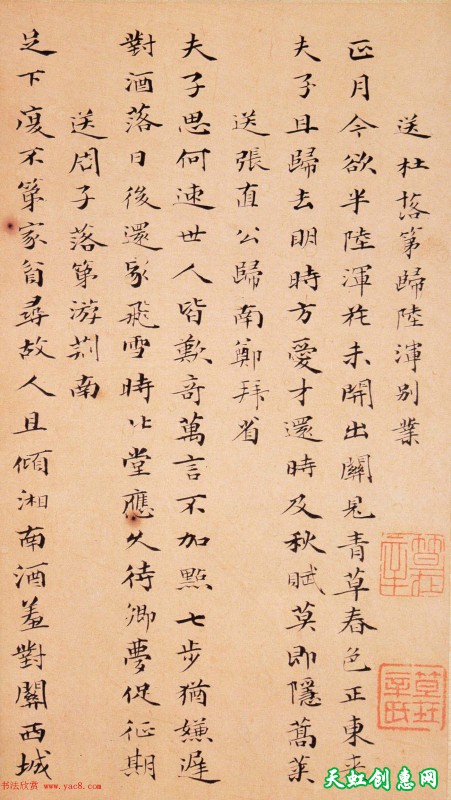 天虹创惠网
送杜落第歸陸渾別業
正月今欲半陸渾花未開出關見青草春色正東来
夫子且歸去明時方愛才還時及秋賦莫即隱蒿萊
送張直公歸南鄭拜省
夫子思何速世人皆歎奇萬言不加點七步猶嫌遲
對酒落日後還家飛雪時北堂應久待鄉夢促征期
送周子落第游荊南
足下復不第家貧尋故人且傾湘南酒羞對關西城
书法欣赏 www.yac8.com
天虹创惠网